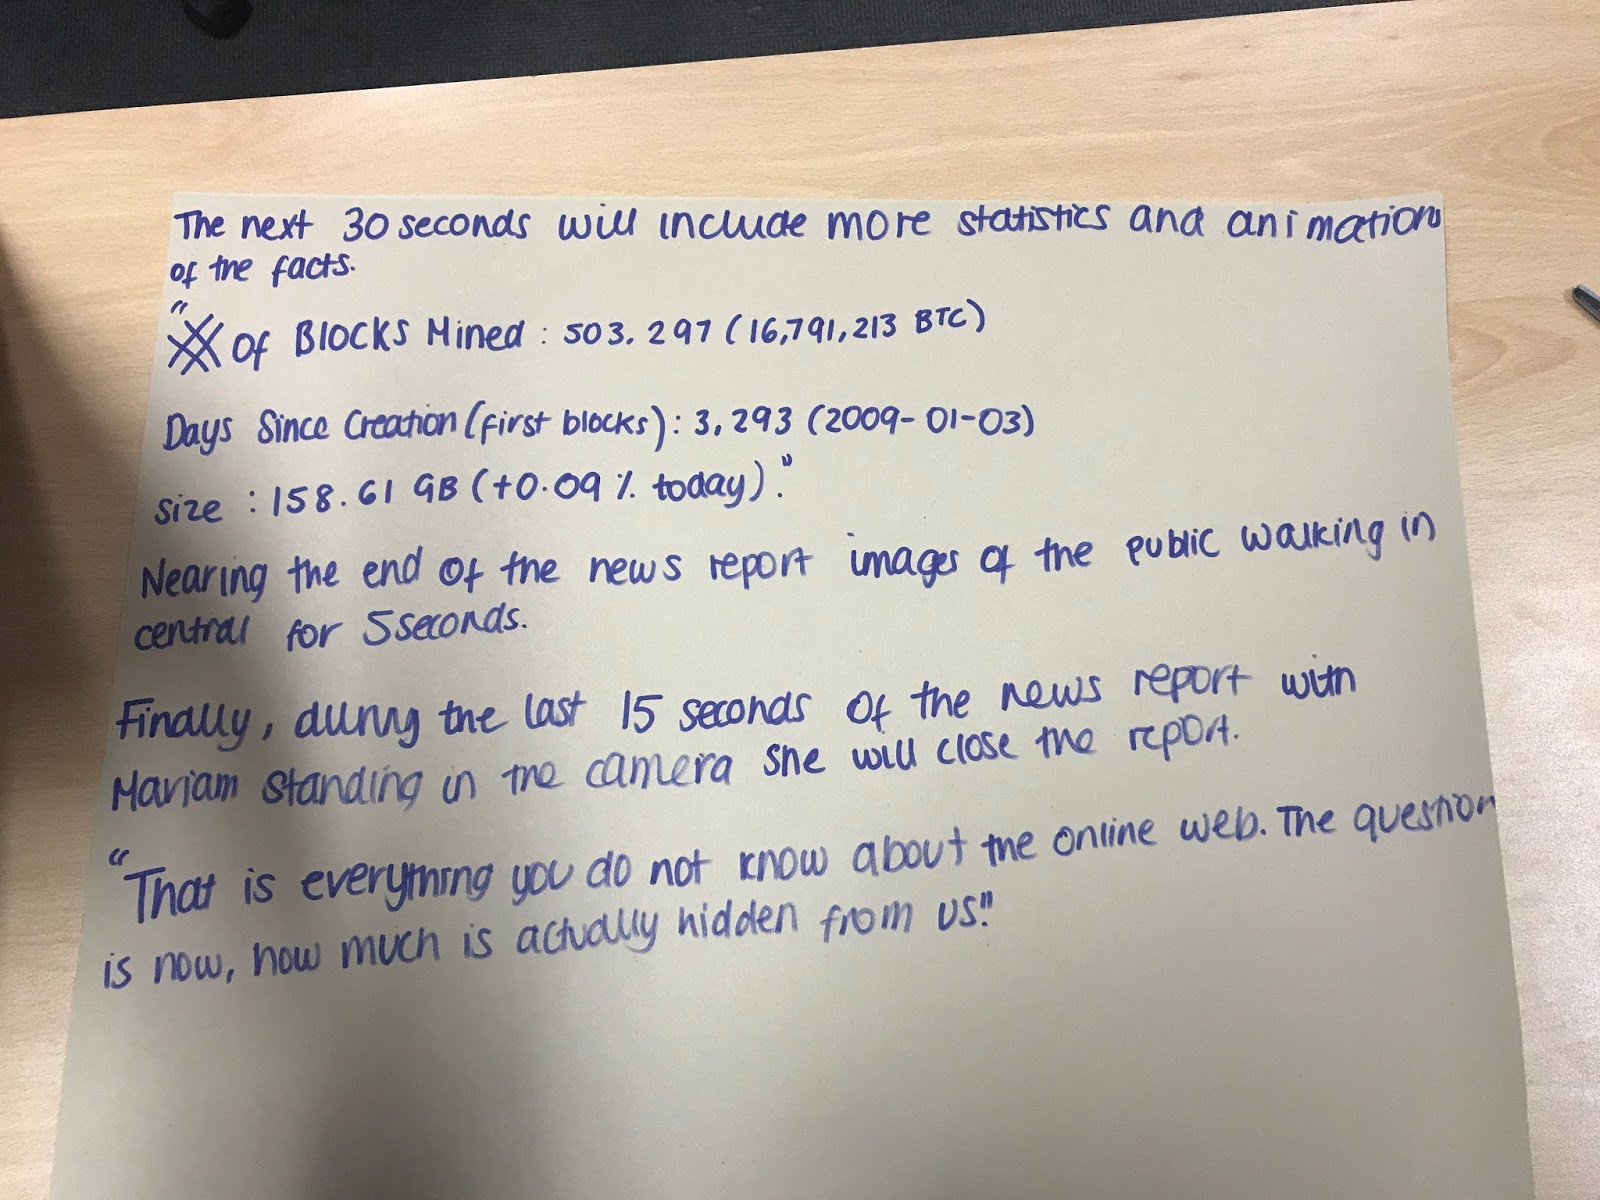 The next 30 seconds will include more statistics and animations
of the facts.
"
Of Blocks Mined : 503.297 (16,791,213 BTC)
Days Since Creation (first blocks) : 3,293 (2009-01-03)
size : 158.61 GB (+0.09% today)."
Nearing the end of the news report images of the public walking in
central for 5 seconds.
Finally, during the last 15 seconds of the news report with
Mariam standing in the camera she will close the report.
"That is everything you do not know about the online web. The question
is now, how much is actually hidden from us"